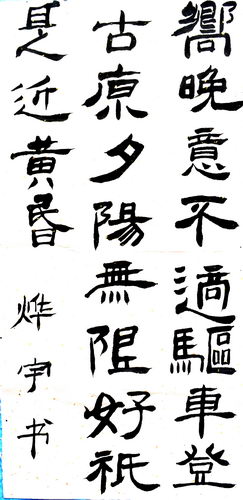 嚮晚意不適驅車登
古原夕陽無限好祇
是近黃昏
烨宇书